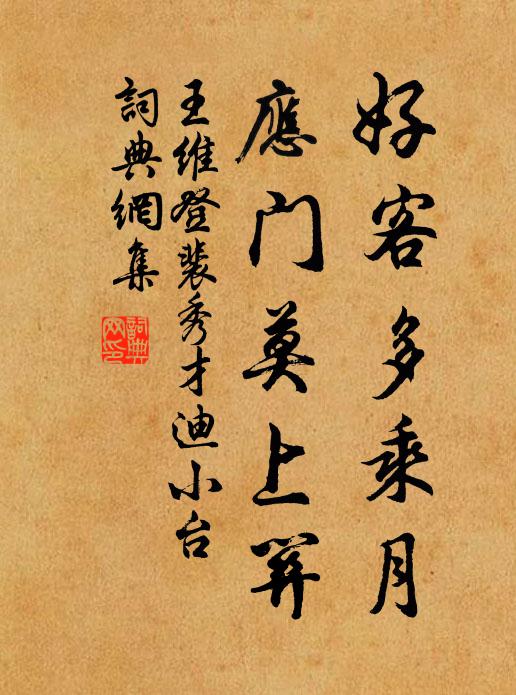 好客多乘月
應門莫上關
王維登裴秀才迪小台
詞典網集
詞典網印